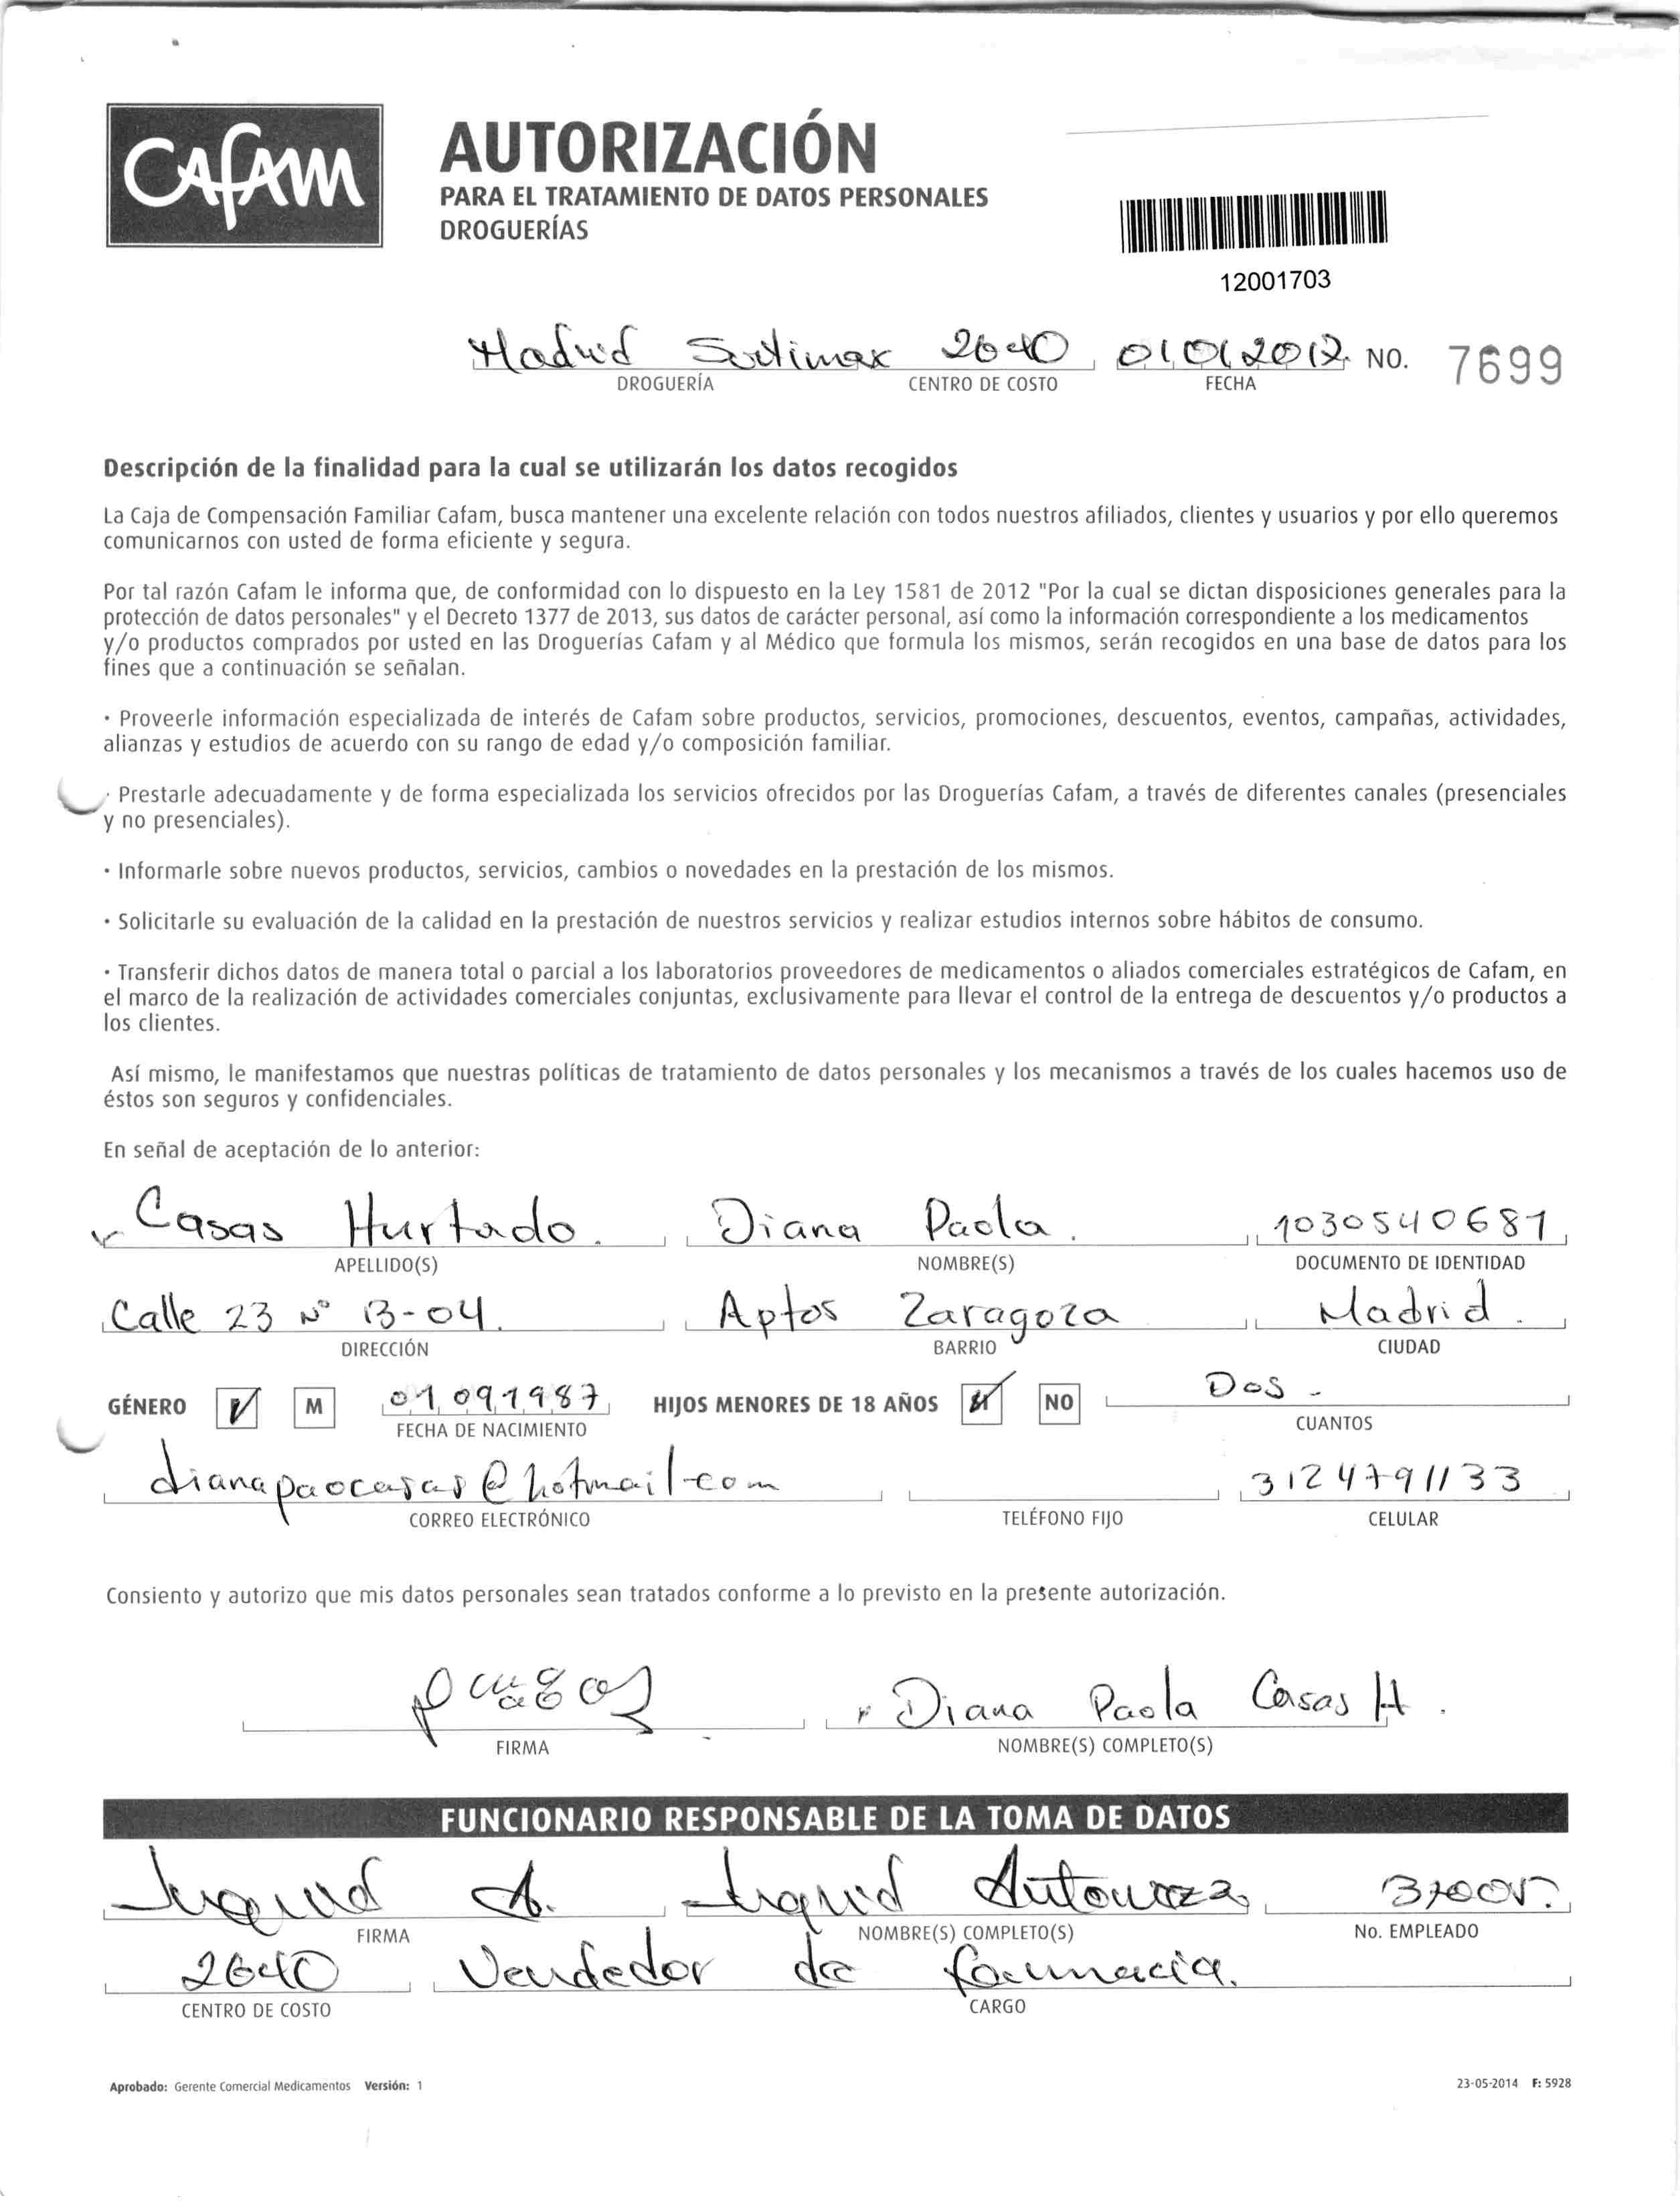 CAFAM
AUTORIZACIÓN
PARA EL TRATAMIENTO DE DATOS PERSONALES
DROGUERÍAS
12001703
Madrid Surtimax 2640 01 01 2017. NO. 7699
DROGUERÍA CENTRO DE COSTO FECHA
Descripción de la finalidad para la cual se utilizarán los datos recogidos
La Caja de Compensación Familiar Cafam, busca mantener una excelente relación con todos nuestros afiliados, clientes y usuarios y por ello queremos
comunicarnos con usted de forma eficiente y segura.
Por tal razón Cafam le informa que, de conformidad con lo dispuesto en la Ley 1581 de 2012 "Por la cual se dictan disposiciones generales para la
protección de datos personales" y el Decreto 1377 de 2013, sus datos de carácter personal, así como la información correspondiente a los medicamentos
y/o productos comprados por usted en las Droguerías Cafam y al Médico que formula los mismos, serán recogidos en una base de datos para los
fines que a continuación se señalan.
· Proveerle información especializada de interés de Cafam sobre productos, servicios, promociones, descuentos, eventos, campañas, actividades,
alianzas y estudios de acuerdo con su rango de edad y/o composición familiar.
· Prestarle adecuadamente y de forma especializada los servicios ofrecidos por las Droguerías Cafam, a través de diferentes canales (presenciales
y no presenciales).
· Informarle sobre nuevos productos, servicios, cambios o novedades en la prestación de los mismos.
· Solicitarle su evaluación de la calidad en la prestación de nuestros servicios y realizar estudios internos sobre hábitos de consumo.
· Transferir dichos datos de manera total o parcial a los laboratorios proveedores de medicamentos o aliados comerciales estratégicos de Cafam, en
el marco de la realización de actividades comerciales conjuntas, exclusivamente para llevar el control de la entrega de descuentos y/o productos a
los clientes.
Así mismo, le manifestamos que nuestras políticas de tratamiento de datos personales y los mecanismos a través de los cuales hacemos uso de
éstos son seguros y confidenciales.
En señal de aceptación de lo anterior:
Casas Hurtado. Diana Paola. 1030540681
APELLIDO(S) NOMBRE(S) DOCUMENTO DE IDENTIDAD
Calle 23 N° 13-04. Aptos Zaragoza Madrid.
DIRECCIÓN BARRIO CIUDAD
GÉNERO M 01 09 1987 HIJOS MENORES DE 18 AÑOS NO Dos.
FECHA DE NACIMIENTO CUANTOS
dianapaocasas@hotmail.com 3124791133
CORREO ELECTRÓNICO TELÉFONO FIJO CELULAR
Consiento y autorizo que mis datos personales sean tratados conforme a lo previsto en la presente autorización.
Diana Paola Casas H.
FIRMA NOMBRE(S) COMPLETO(S)
FUNCIONARIO RESPONSABLE DE LA TOMA DE DATOS
Ingrid A. Ingrid
FIRMA NOMBRE(S) COMPLETO(S) No. EMPLEADO
2640 Vendedor de farmacia.
CENTRO DE COSTO CARGO
Aprobado: Gerente Comercial Medicamentos Versión: 1 23-05-2014 F: 5928